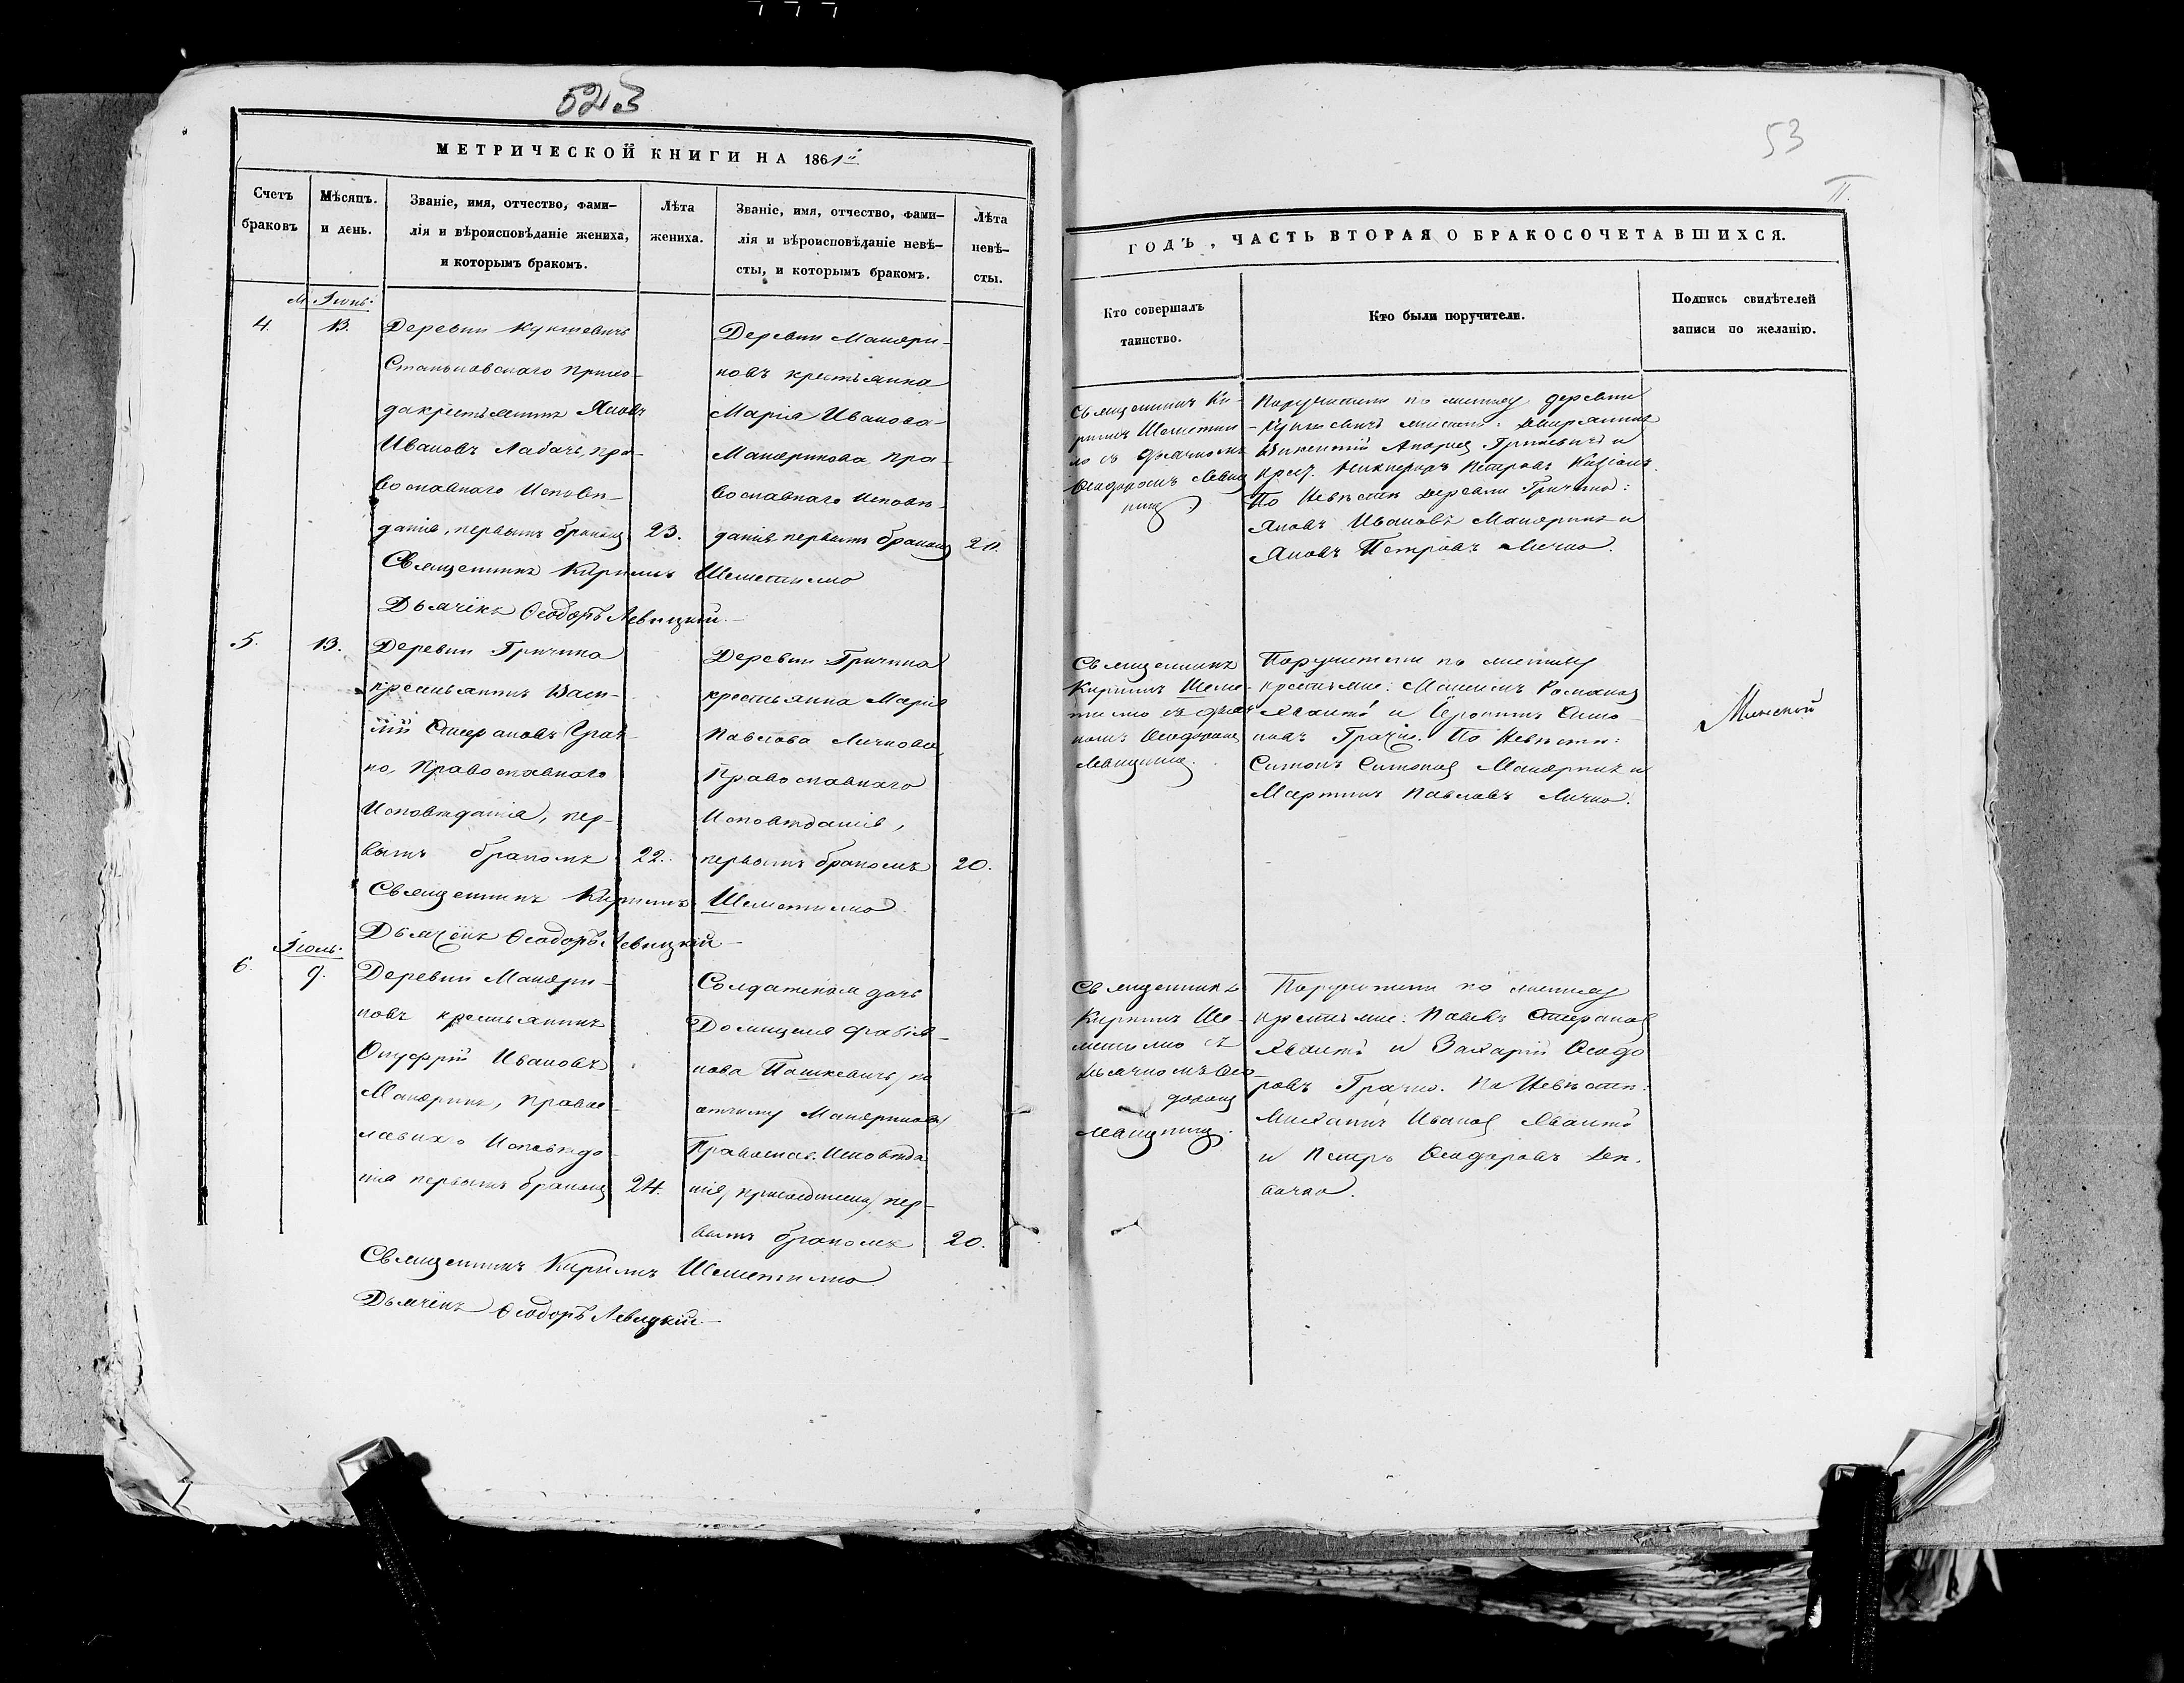 523
МЕТРИЧЕСКОЙ КНИГИ НА 1861й
Счетъ
браковъ
Мѣсяцъ.
и день.
Званіе, имя, отчество, фами-
лія и вѣроисповѣданіе жениха,
и которымъ бракомъ.
Лѣта
жениха.
Званіе, имя, отчество, фами-
лія и вѣроисповѣданіе невѣ-
сты, и которымъ бракомъ.
Лѣта
невѣ-
сты.
М. Іюнь.
4.
13.
Деревни Кукшевичь
Станьковскаго прихо-
да крестьянинъ Яковъ
Ивановъ Лабачь, пра-
вославнаго Исповѣ-
данія, первымъ бракомъ
23.
Деревни Макари-
ковъ крестьянка
Марія Иванова
Макарикова, пра-
вославнаго исповѣ-
данія первымъ бракомъ
Священникъ Кириллъ Шеметилло
Дьячекъ Ѳеодоръ Левицкій
5.
13.
Деревни Гричина
крестьянинъ Васи-
лій Стефановъ Грач-
ко, Православнаго
Исповѣданія, пер-
вымъ бракомъ
22.
Деревни Гричина
крестьянка Марія
Павлова Личкова
Православнаго
Исповѣданія,
первымъ бракомъ
20.
Священникъ Кириллъ Шеметилло
Дьячекъ Ѳеодоръ Левицкій
Іюль.
6.
9.
Деревни Макари-
ковъ крестьянинъ
Онуфрій Ивановъ
Макарикъ, правос-
лавнаго Исповѣда-
нія первымъ бракомъ
24.
Солдатская дочь
Домицеля Фабія-
нова Пашкевичь, по
отчиму Макарикова
Православ. Исповѣда
нія, присоединена, пер-
вымъ бракомъ
20.
Священникъ Кириллъ Шеметилло
Дьячекъ Ѳеодоръ Левицкій
53
II.
ГОДЪ, ЧАСТЬ ВТОРАЯ О БРАКОСОЧЕТАВШИХСЯ.
Кто совершалъ
таинство.
Кто были поручители.
Подпись свидѣтелей
записи по желанію.
Священникъ Ки-
риллъ Шеметил-
ло съ дьячкомъ
Ѳеодоромъ Левиц
кимъ
Поручители по жениху деревни
Дворянинъ
Викентій Андреев Гриневичъ и
крест. Никифоръ Петровъ
По Невѣстѣ деревни Гричина:
Яковъ Ивановъ Макарикъ и
Яковъ Петровъ Личко.
Священникъ
Кириллъ Шеме-
тилло съ дьяч
комъ Ѳеодоромъ
Левицкимъ.
Поручители по жениху
крестьяне: Максимъ Романов
и Іеронимъ
Грачко. По Невѣсти:
Симонъ Симонов Макарикъ и
Мартинъ Павловъ Личко.
Священникъ
Кириллъ Ше-
метилло съ
дьячкомъ Ѳео-
доромъ
Левицкимъ.
Поручители по жениху
крестьяне: Павелъ Стефанов
и Захарій Ѳеодо
ровъ Грачко. По Невѣстѣ:
Михаилъ Иванов
и Петръ Ѳеодоровъ